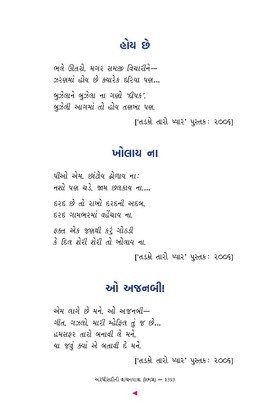 હોય છે
ભલે ઊતરો, મગર સમજી વિચારીને—
ઝરણમાં હોય છે ક્યારેક દરિયા પણ...
બુઝેલાને બુઝેલા ના ગણો 'દીપક',
બુઝેલી આગમાં તો હોય તણખા પણ.
['તડકો તારો પ્યાર' પુસ્તક: ૨૦૦૬]
ખોલાય ના
પીઓ એમ, છાંટોય ઢોળાય ના:
નશો પણ ચડે, જામ છલકાય ના...
દરદ છે તો રાખો દરદની અદબ,
દરદ ગામભરમાં વ્હેંચાય ના.
ફક્ત એક જણથી કરું ગોઠડી
કે દિલ શેરી શેરી તો ખોલાય ના.
['તડકો તારો પ્યાર' પુસ્તક: ૨૦૦૬]
ઓ અજનબી!
એમ લાગે છે મને, ઓ અજનબી—
ગીત, ગઝલો, મારી મોહફિલ તું જ છે...
હમસફર તારો બનાવી લે મને,
વા જવું ક્યાં એ બતાવી દે મને.
['તડકો તારો પ્યાર' પુસ્તક: ૨૦૦૬]